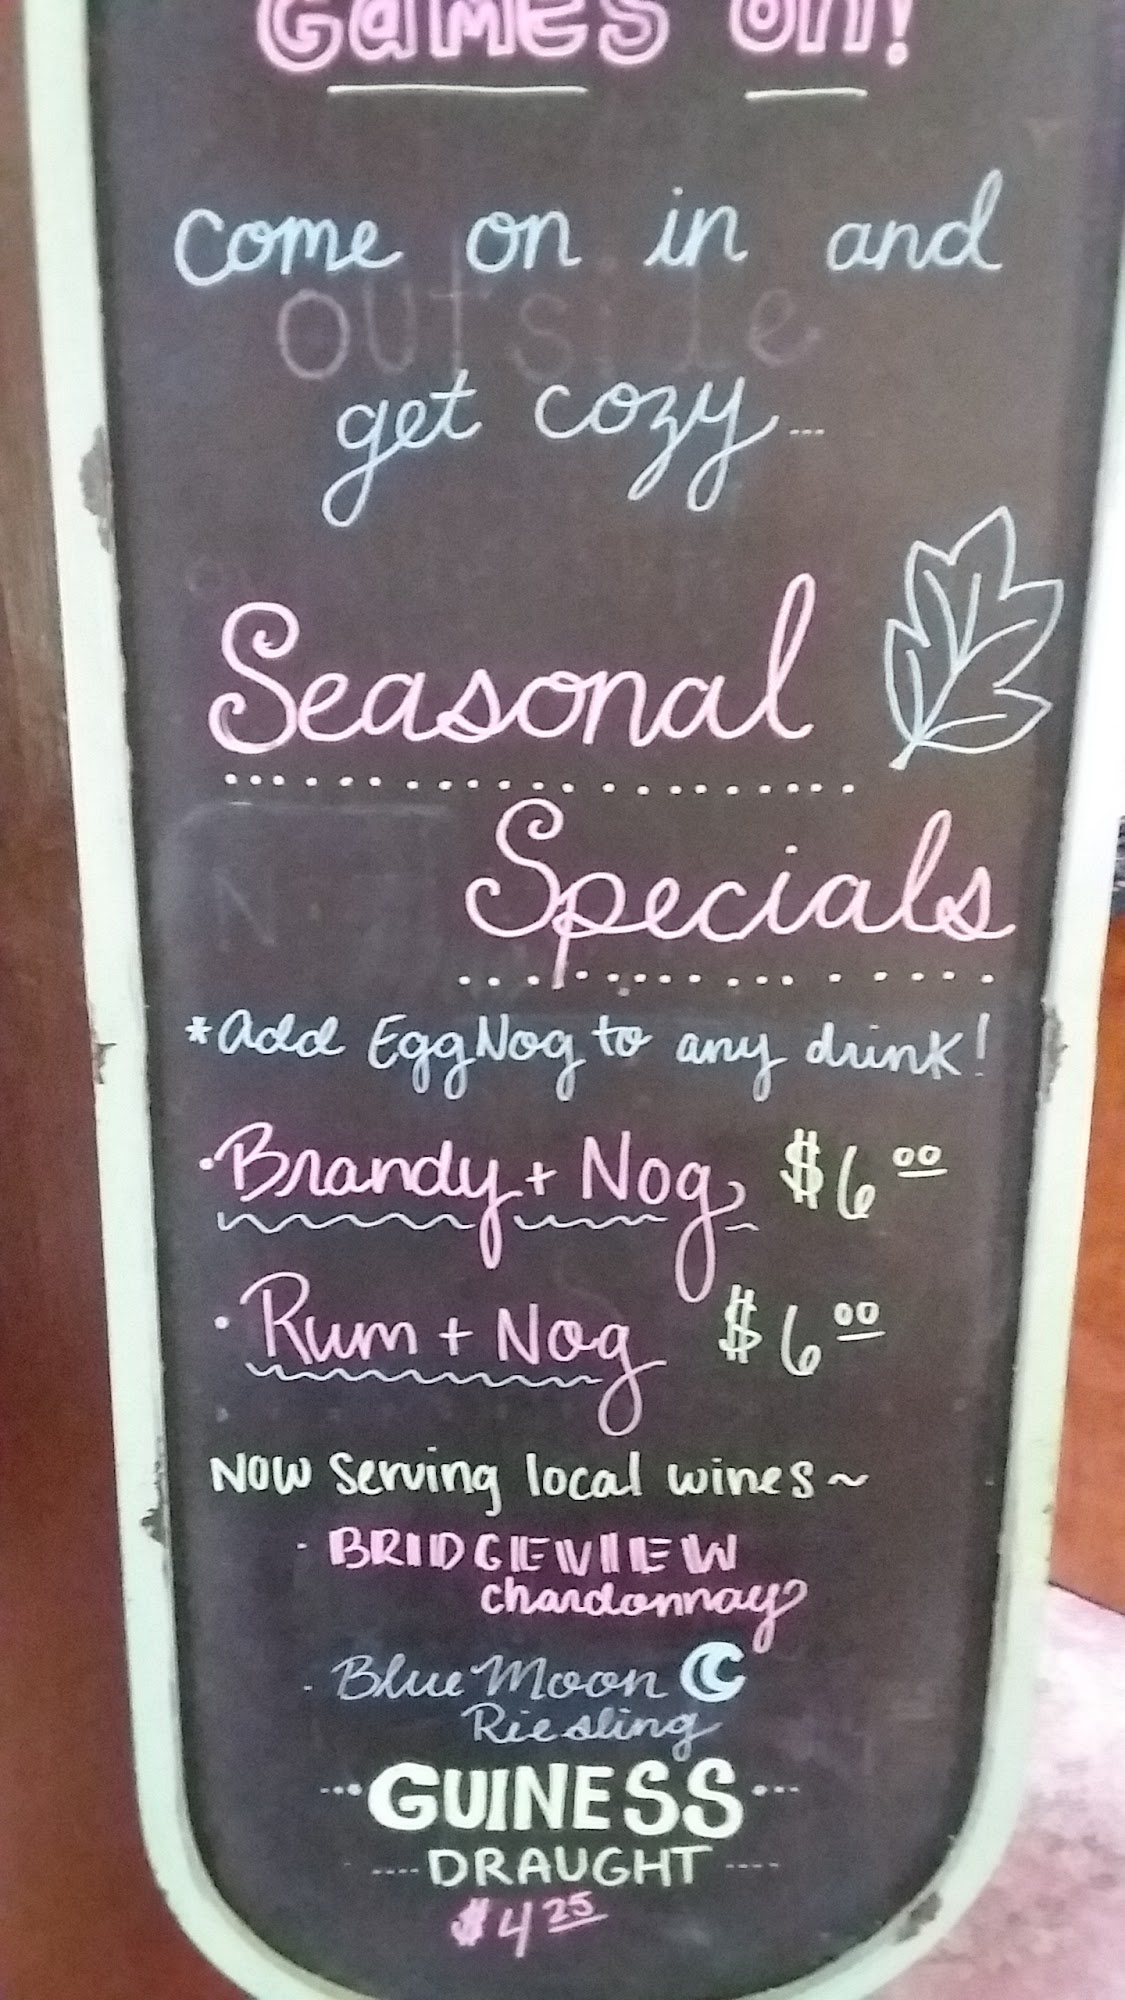 Games on!
come on in and
outside
get cozy...
Seasonal
Specials
*add EggNog to any drink!
· Brandy + Nog $6 00
· Rum + Nog $6 00
NOW serving local wines ~
- BRIDGEVIEW
chardonnay
- Blue Moon
Riesling
GUINESS
DRAUGHT
$4 25